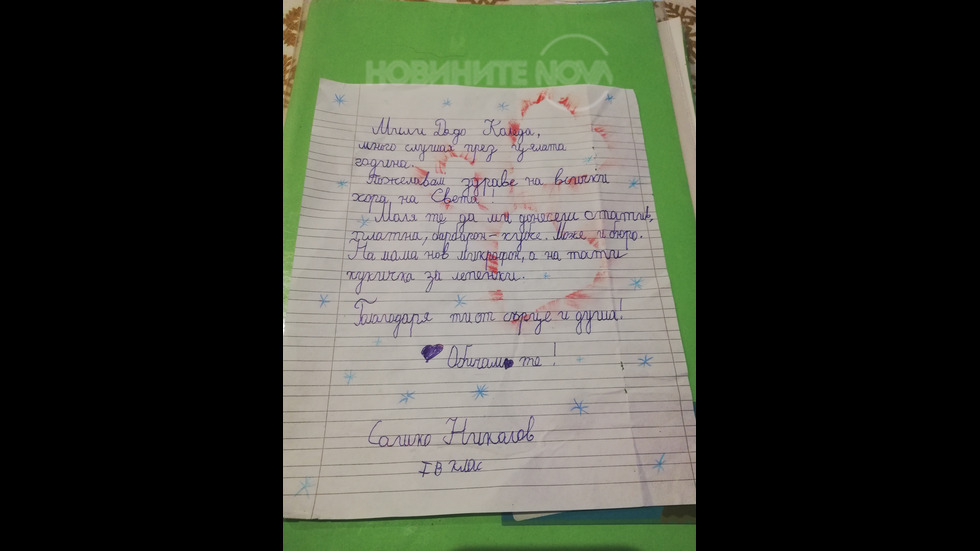 НОВИНИТЕ NOVA
Мили Дядо Коледа,
много слушах през цялата
година.
Пожелавам здраве на всички
хора на Света!
Моля те да ми донесеш
платна, - хубе. Може и бюро.
На мама нов микрофон, а на тати
кукичка за лепенки.
Благодаря ти от сърце и душа!
Обичам те!
Сашко Николов
I В клас